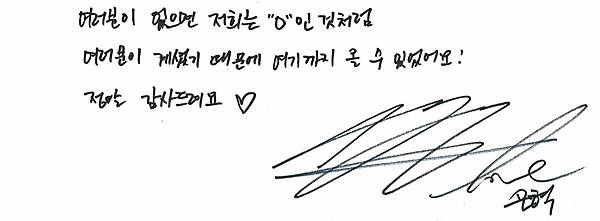 여러분이 없으면 저희는 "0"인 것처럼
여러분이 계셨기 때문에 여기까지 올 수 있었어요!
정말 감사드려요 ♡